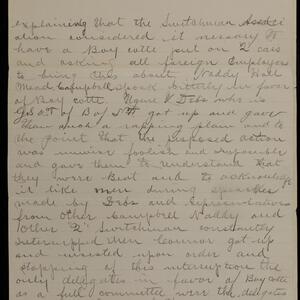 explaining that the Switchman Associ
ation considered it nessary to
have a Boy cotte put on 2 cars
and asking all foreign Employes
to bring this about. Naddy Hall
Mead Campbell spook bitterly in favor
of Boy cotte. Eugene V Debs who is
G S & T of B of F got up and gave
them such a rapping plain and to
the point that this proposed action
was unwise foolish and impossible
and gave them to understand that
they were Beat and to acknowledge
it like men during speaches
made by Debs and Representatives
from other Campbell Naddy and
other Switchman constantly
interrupted them Connor got up
and insisted upon order and
stopping of this interruption the
only delegates in favor of Boy cotte
as a full committee were the delegates